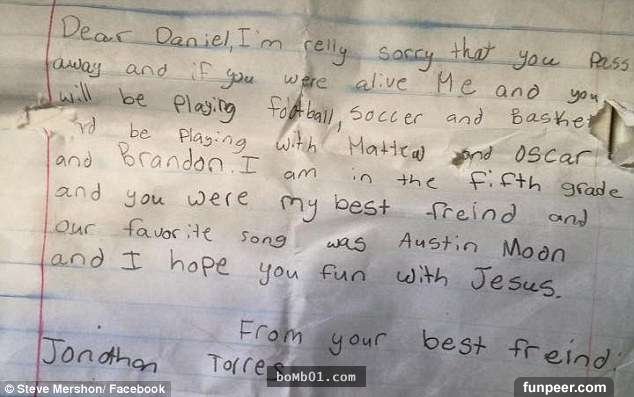 Dear Daniel, I'm relly sorry that you Pass
away and if you were alive Me and you
will be Playing football, Soccer and Basket
be Playing with Mattew and OSCAR
and Brandon. I am in the fifth grade
and you were my best freind and
our favorite song was Austin Moon
and I hope you fun with Jesus.
From your best freind:
Jonathan Torres
boMb01.com
© Steve Mershon/ Facebook
funpeer.com